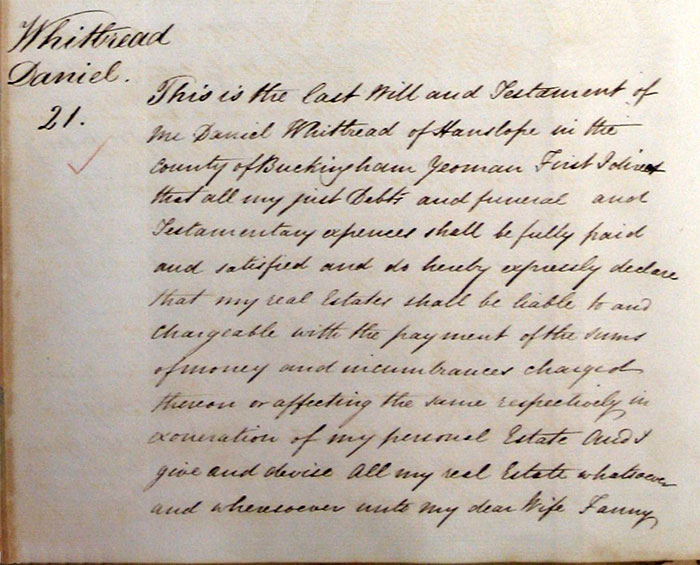 Whitbread
Daniel.
21.
This is the last Will and Testament of
me Daniel Whitbread of Hanslope in the
County of Buckingham Yeoman First I direct
that all my just Debts and funeral and
Testamentary expences shall be fully paid
and satisfied and do hereby expressly declare
that my real Estates shall be liable to and
chargeable with the payment of the sums
of money and incumbrances charged
thereon or affecting the same respectively in
exoneration of my personal Estate And I
give and devise All my real Estate whatsoever
and wheresoever unto my dear Wife Fanny